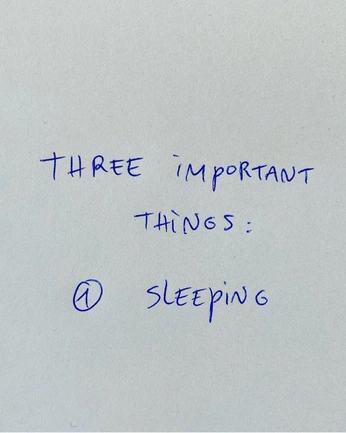 THREE iMPORTANT
THiNGS:
① SLEEPiNG